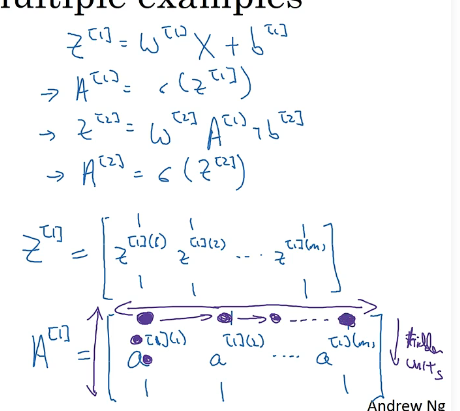 multiple examples
Z^[1] = W^[1] X + b^[1]
→ A^[1] = σ(Z^[1])
→ Z^[2] = W^[2] A^[1] + b^[2]
→ A^[2] = σ(Z^[2])
Z^[1] = [ z^[1](1) z^[1](2) ... z^[1](m) ]
A^[1] = [ a^[1](1) a^[1](2) .... a^[1](m) ] hidden units
Andrew Ng